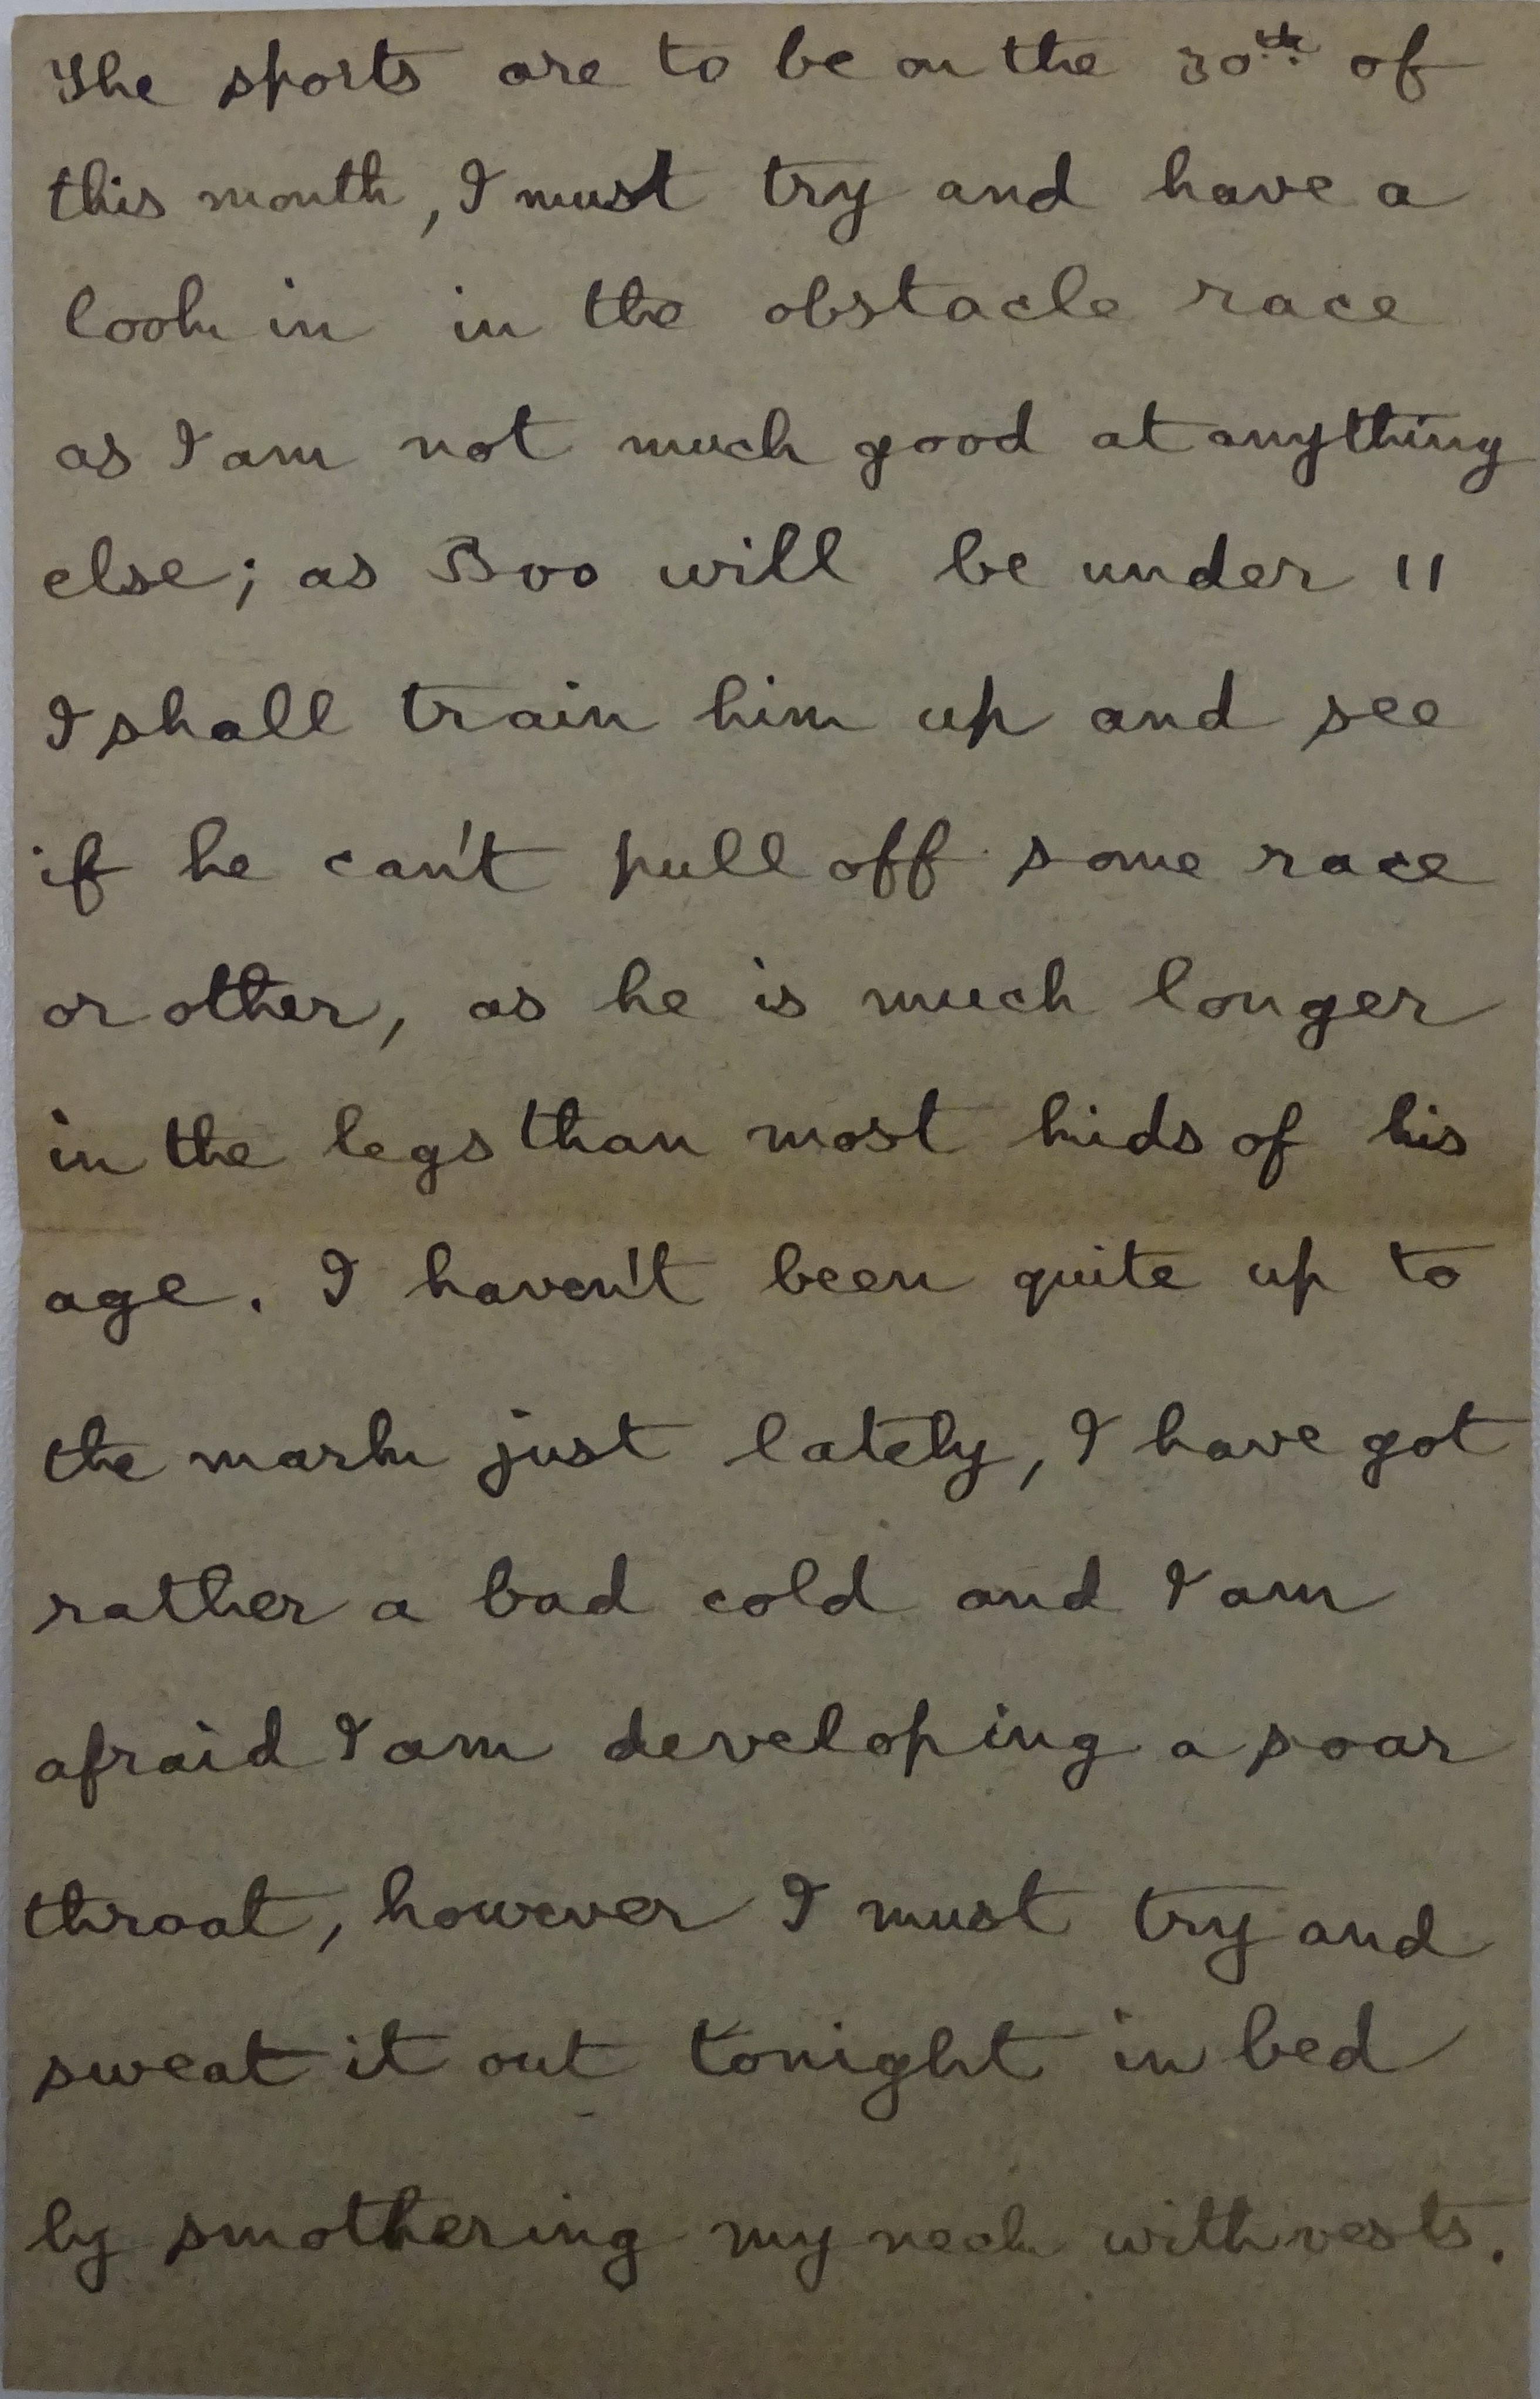 The sports are to be on the 30th of
this month, I must try and have a
look in in the obstacle race
as I am not much good at anything
else; as Boo will be under 11
I shall train him up and see
if he can't pull off some race
or other, as he is much longer
in the legs than most kids of his
age. I haven't been quite up to
the mark just lately, I have got
rather a bad cold and I am
afraid I am developing a soar
throat, however I must try and
sweat it out tonight in bed
by smothering my neck with vests.